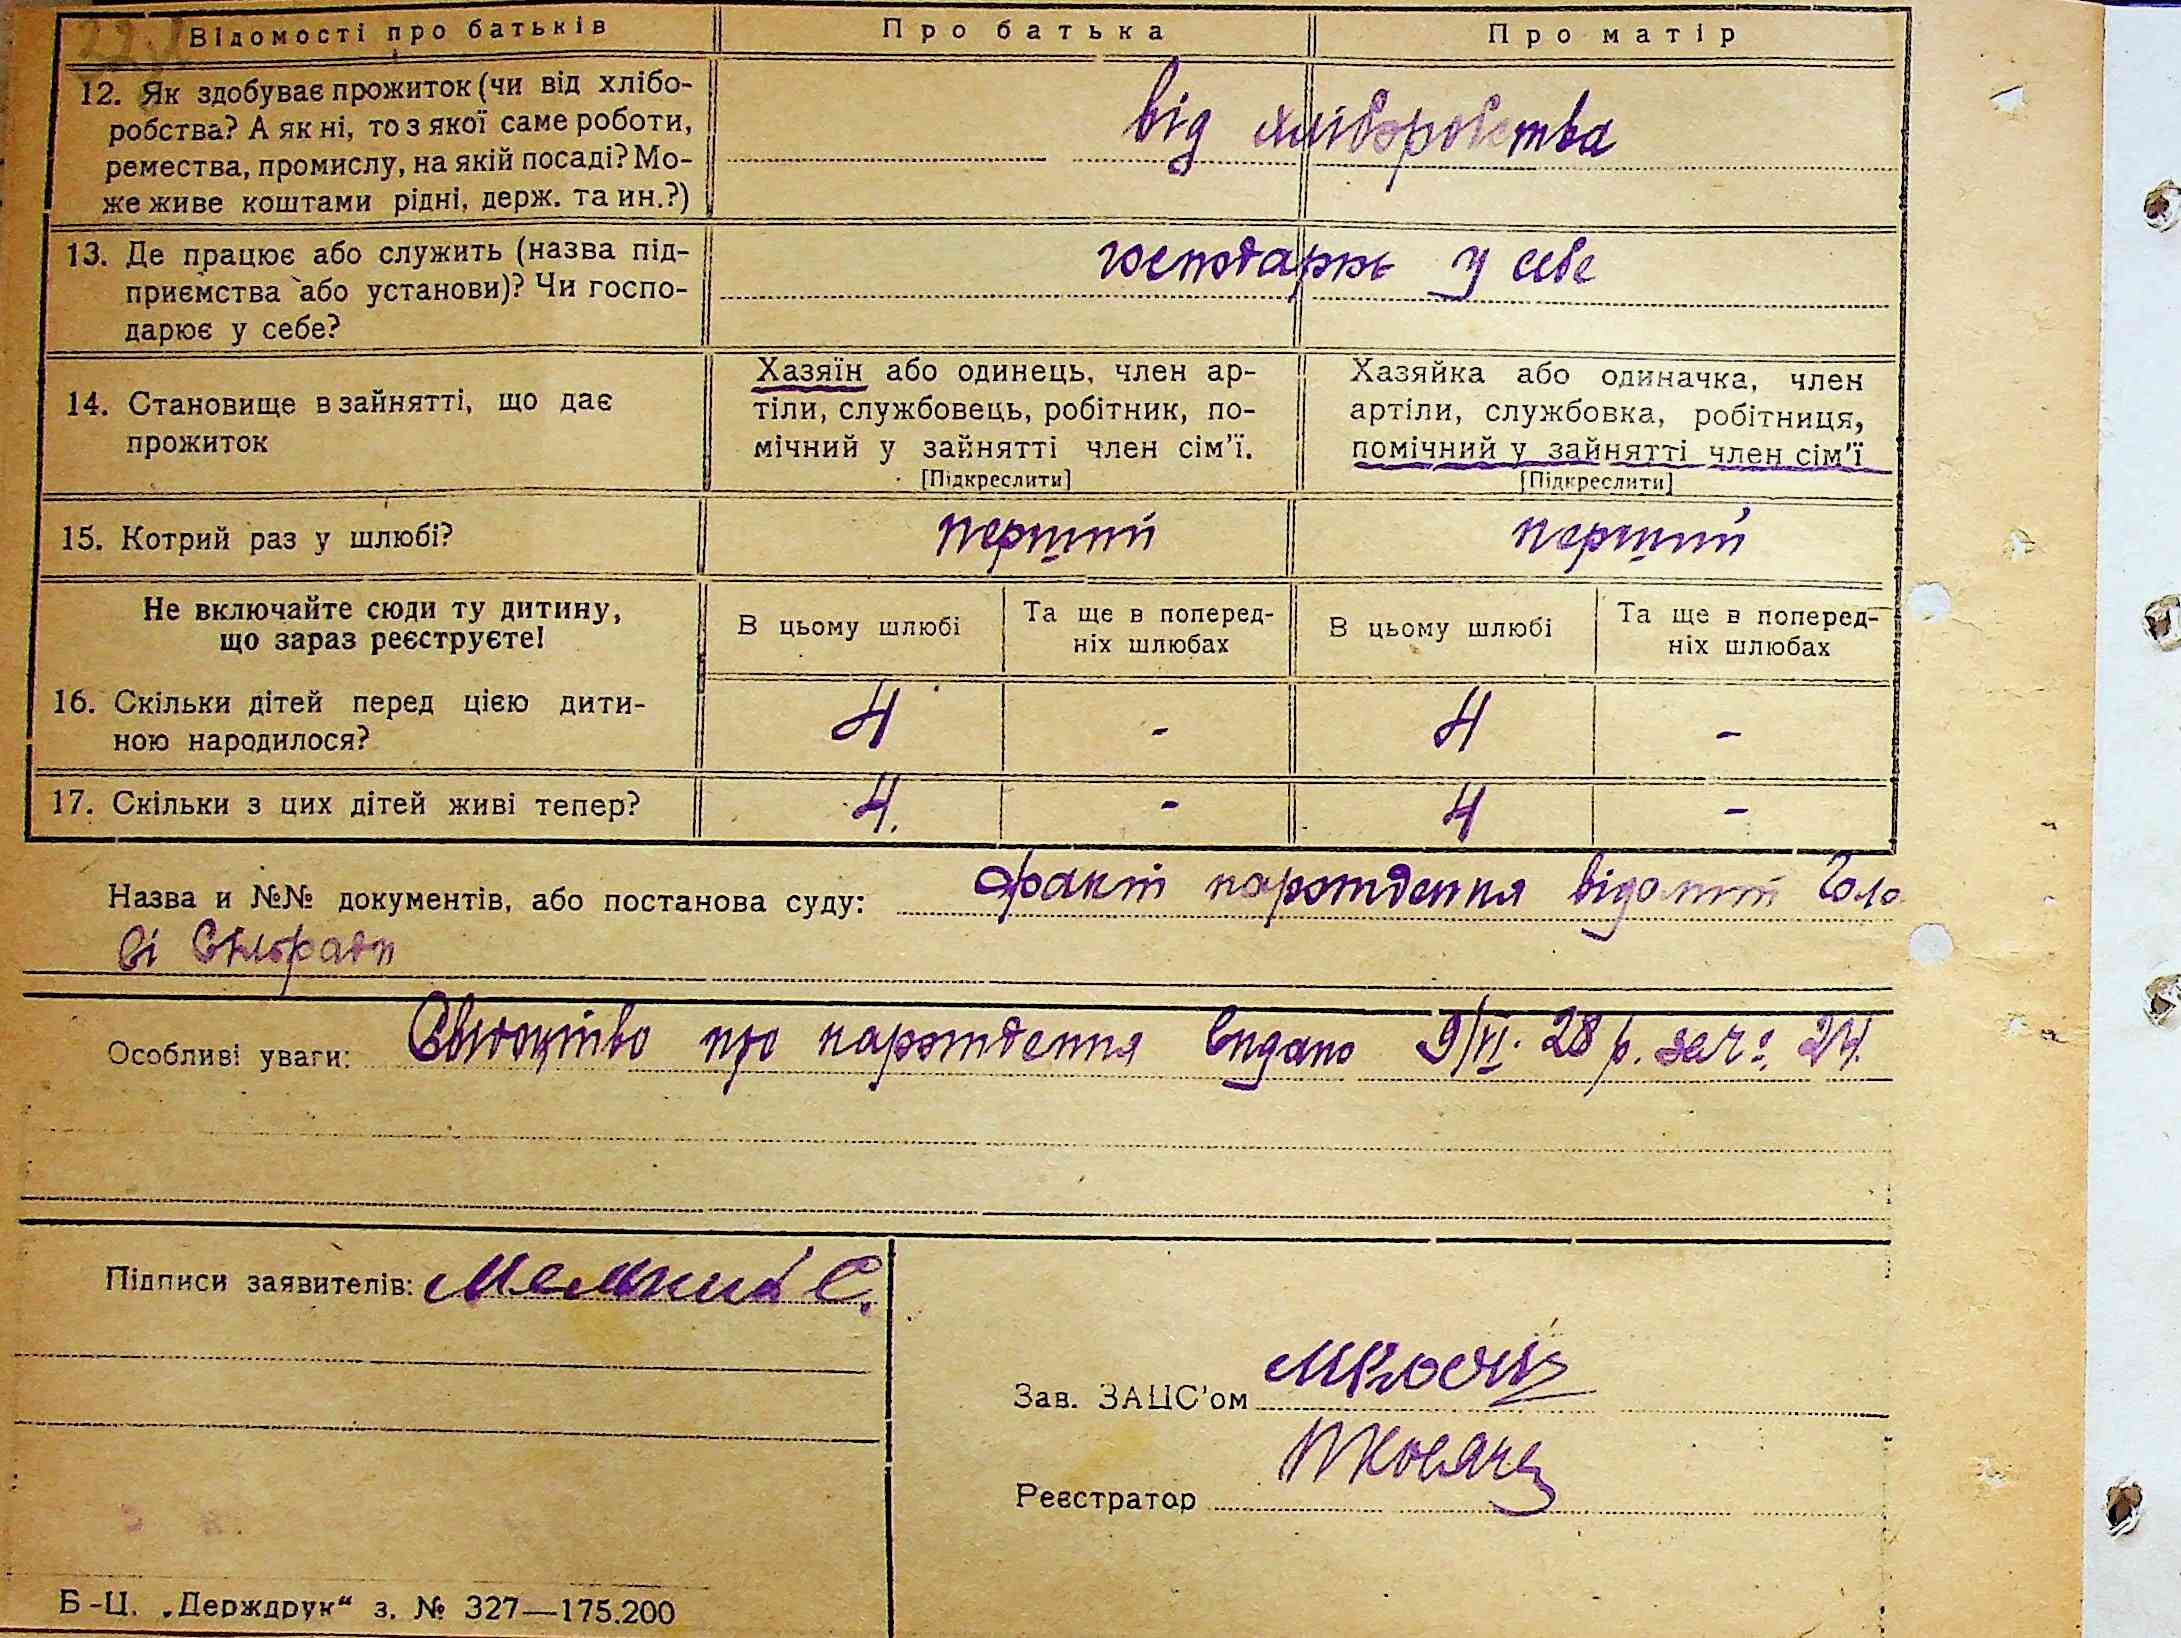 Відомості про батьків Про батька Про матір
12. Як здобуває прожиток (чи від хлібо-
робства? А як ні, то з якої саме роботи,
ремества, промислу, на якій посаді? Мо-
же живе коштами рідні, держ. та ин.?)
від хліборобства
13. Де працює або служить (назва під-
приємства або установи)? Чи госпо-
дарює у себе?
господарює у себе
14. Становище в зайнятті, що дає
прожиток
Хазяїн або одинець, член ар-
тіли, службовець, робітник, по-
мічний у зайнятті член сім'ї.
[Підкреслити]
Хазяйка або одиначка, член
артіли, службовка, робітниця,
помічний у зайнятті член сім'ї
[Підкреслити]
15. Котрий раз у шлюбі? перший перший
Не включайте сюди ту дитину,
що зараз реєструєте!
В цьому шлюбі
Та ще в поперед-
ніх шлюбах
В цьому шлюбі
Та ще в поперед-
ніх шлюбах
16. Скільки дітей перед цією дити-
ною народилося?
4 - 4 -
17. Скільки з цих дітей живі тепер? 4. - 4 -
Назва и №№ документів, або постанова суду: факт народження відомий Голо
ві Сільради
Особливі уваги: Свідоцтво про народження видано 9/VI. 28 р. за ч: 24.
Підписи заявителів: Мельник С.
Зав. ЗАЦС'ом
Реєстратор
Б-Ц. „Держдрук“ з. № 327—175.200